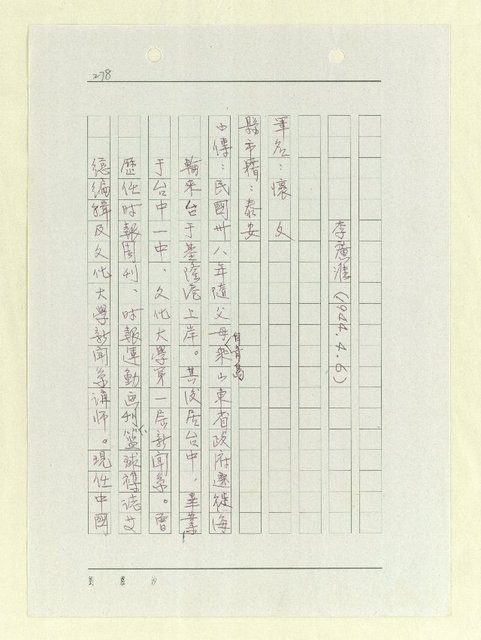 278
李(1944.4.6)
筆名：懷文
縣市籍：泰安
小傳：民國卅八年隨父母乘山東省政府遷徙海
自青島
輪來台于基隆港上岸。其後居台中，畢業
于台中一中、文化大學第一屆新聞系。曾
歷任時報周刊、時報運動画刊、籃球雜誌文
總編輯及文化大學新聞系講師。現任中國